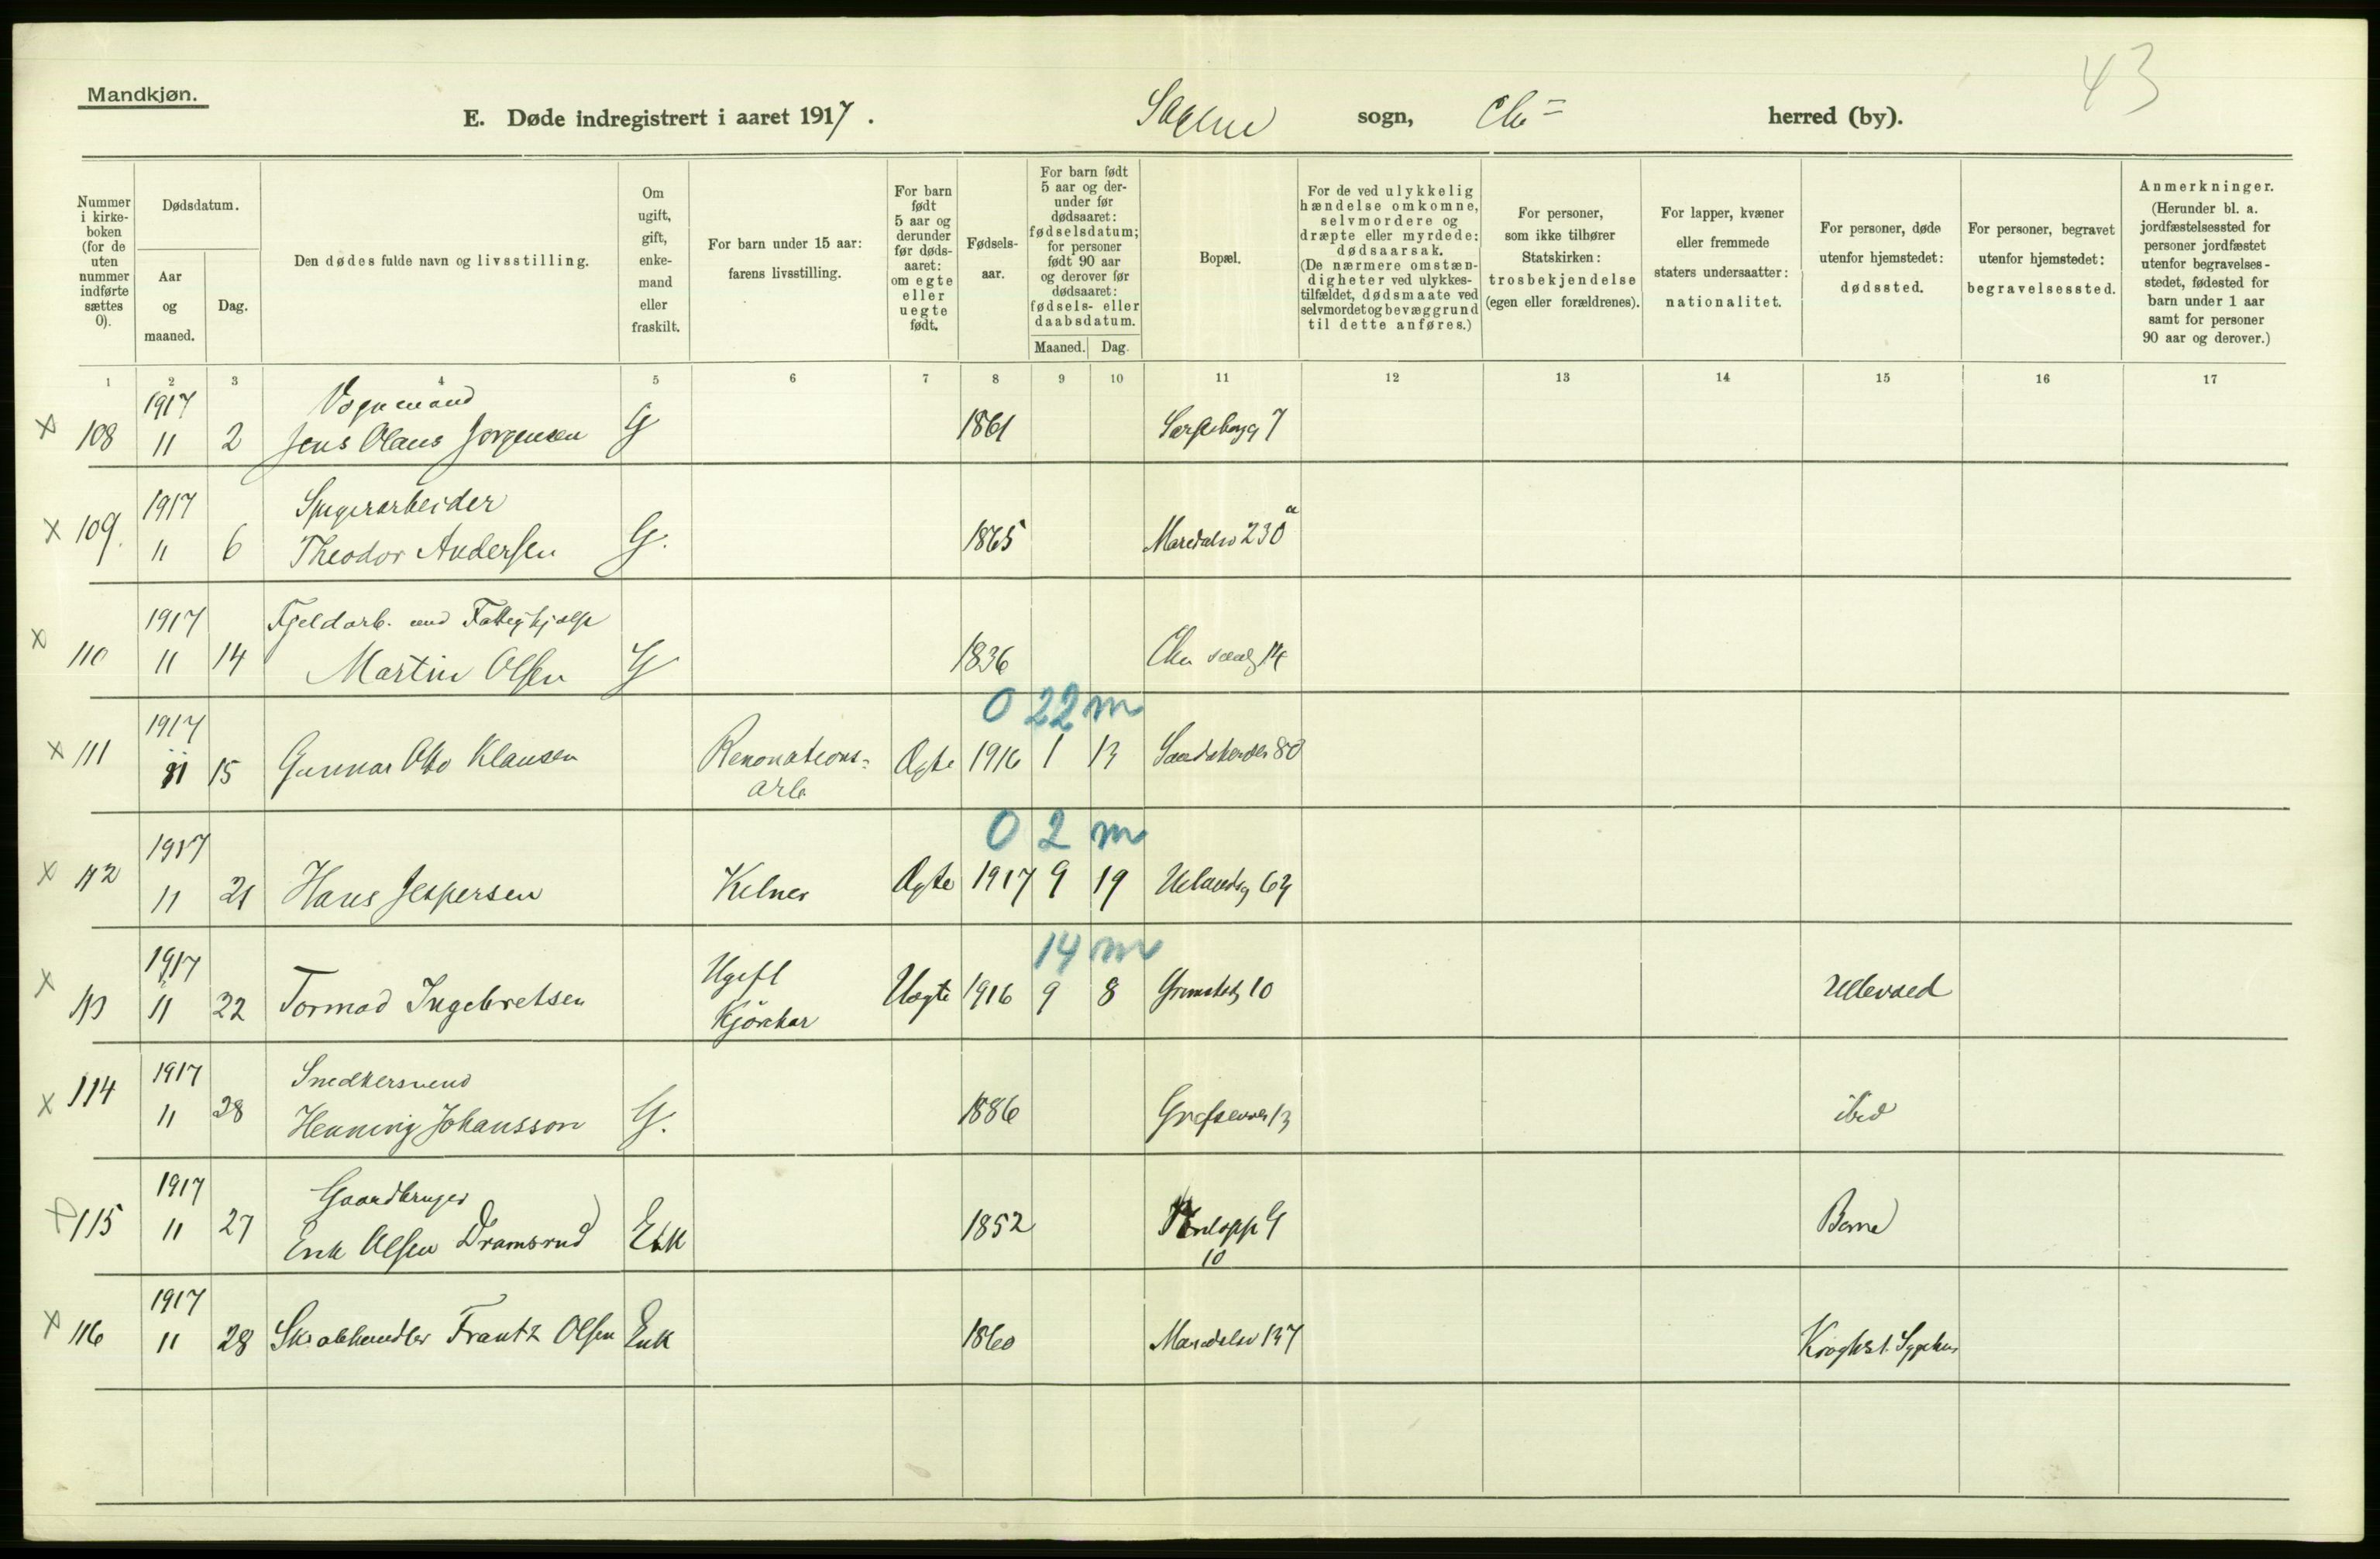 Mandkjøn.
43
E. Døde indregistrert i aaret 1917.
sogn,
herred (by).
Nummer i kirke-boken (for de uten nummer indførte sættes 0).
Dødsdatum.
Aar og maaned.
Dag.
Den dødes fulde navn og livsstilling.
Om ugift, gift, enke-mand eller fraskilt.
For barn under 15 aar: farens livsstilling.
For barn født 5 aar og derunder før døds-aaret: om egte eller uegte født.
Fødsels-aar.
For barn født 5 aar og der-under før dødsaaret: fødselsdatum; for personer født 90 aar og derover før dødsaaret: fødsels- eller daabsdatum.
Maaned. Dag.
Bopæl.
For de ved ulykkelig hændelse omkomne, selvmordere og dræpte eller myrdede: dødsaarsak. (De nærmere omstæn-digheter ved ulykkes-tilfældet, dødsmaate ved selvmordet og bevæggrund til dette anføres.)
For personer, som ikke tilhører Statskirken: trosbekjendelse (egen eller forældrenes).
For lapper, kvæner eller fremmede staters undersaatter: nationalitet.
For personer, døde utenfor hjemstedet: dødssted.
For personer, begravet utenfor hjemstedet: begravelsessted.
Anmerkninger. (Herunder bl. a. jordfæstelsessted for personer jordfæstet utenfor begravelses-stedet, fødested for barn under 1 aar samt for personer 90 aar og derover.)
1 2 3 4 5 6 7 8 9 10 11 12 13 14 15 16 17
1917 Vognmand
x 108 11 2 Jens Olaus Jorgensen G 1861 7
1917 Spigerarbeider
x 109. 11 6 Theodor Andersen G. 1865 Maridalsv 230 a
1917 Fjeldarb. Fattighjælp
x 110 11 14 Martin Olsen G 1836 14
0 22 m
1917
x 111 11 15 Gunnar Otto Klausen Renovations- Ægte 1916 1 13 80
arb
0 2 m
1917
x 112 11 21 Hans Jespersen Kelner Ægte 1917 9 19 Uelandsg 69
14 m
1917 Ugift
x 113 11 22 Tormod Ingebretsen Uægte 1916 9 8 Grimstadg 10 Ullevaal
1917 Snedkersvend
x 114 11 28 Henning Johansson G. 1886 Grefsenvei 13 ibid
1917 Gaardbruger
x 115 11 27 Erik Olsen Dramsrud Enk 1852
10
1917
x 116 11 28 Skrabhandler Frantz Olsen Enk 1860 Maridalsv 137 Kroghst. Sygehus